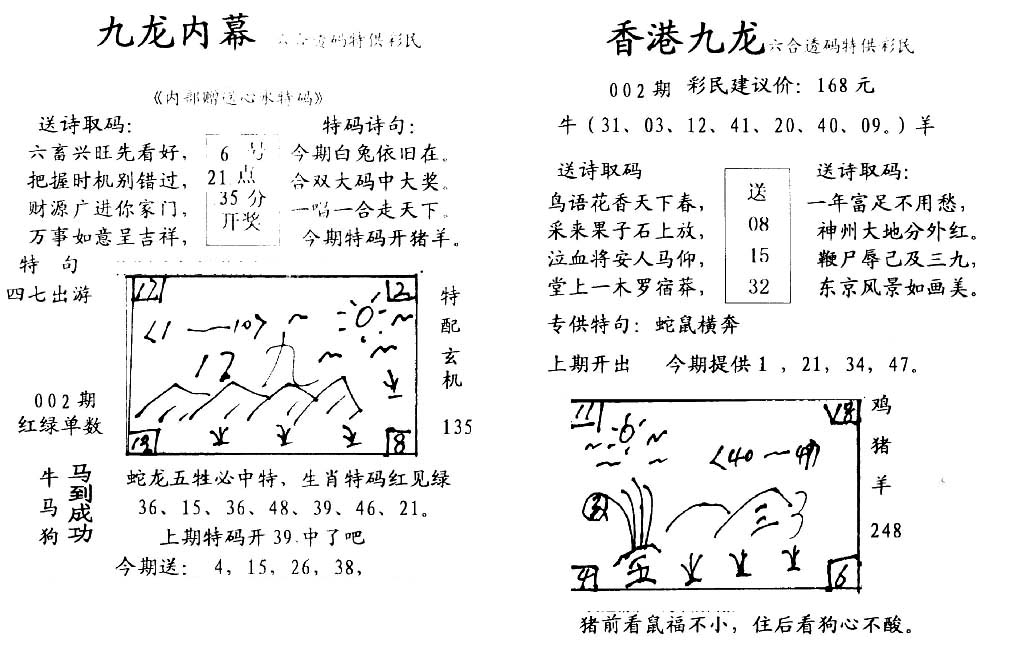 九龙内幕 六合透码特供彩民
《内部赠送心水特码》
送诗取码:
六畜兴旺先看好,
把握时机别错过,
财源广进你家门,
万事如意呈吉祥,
6 号
21 点
35 分
开奖
特码诗句:
今期白兔依旧在。
合双大码中大奖。
一唱一合走天下。
今期特码开猪羊。
特 句
四七出游
002期
红绿单数
12
2
〈1——10〉
12
九
13
8
特
配
玄
机
135
牛
马
狗
马到成功
蛇龙五牲必中特, 生肖特码红见绿
36、15、36、48、39、46、21。
上期特码开39.中了吧
今期送: 4, 15, 26, 38,
香港九龙 六合透码特供彩民
002期 彩民建议价: 168元
牛 (31、03、12、41、20、40、09。) 羊
送诗取码
鸟语花香天下春,
采来果子石上放,
泣血将安人马仰,
堂上一木罗宿莽,
送
08
15
32
送诗取码:
一年富足不用愁,
神州大地分外红。
鞭尸辱己及三九,
东京风景如画美。
专供特句: 蛇鼠横奔
上期开出 今期提供1 , 21, 34, 47。
11
18
〈40—49〉
三
4
6
鸡
猪
羊
248
猪前看鼠福不小, 住后看狗心不酸。